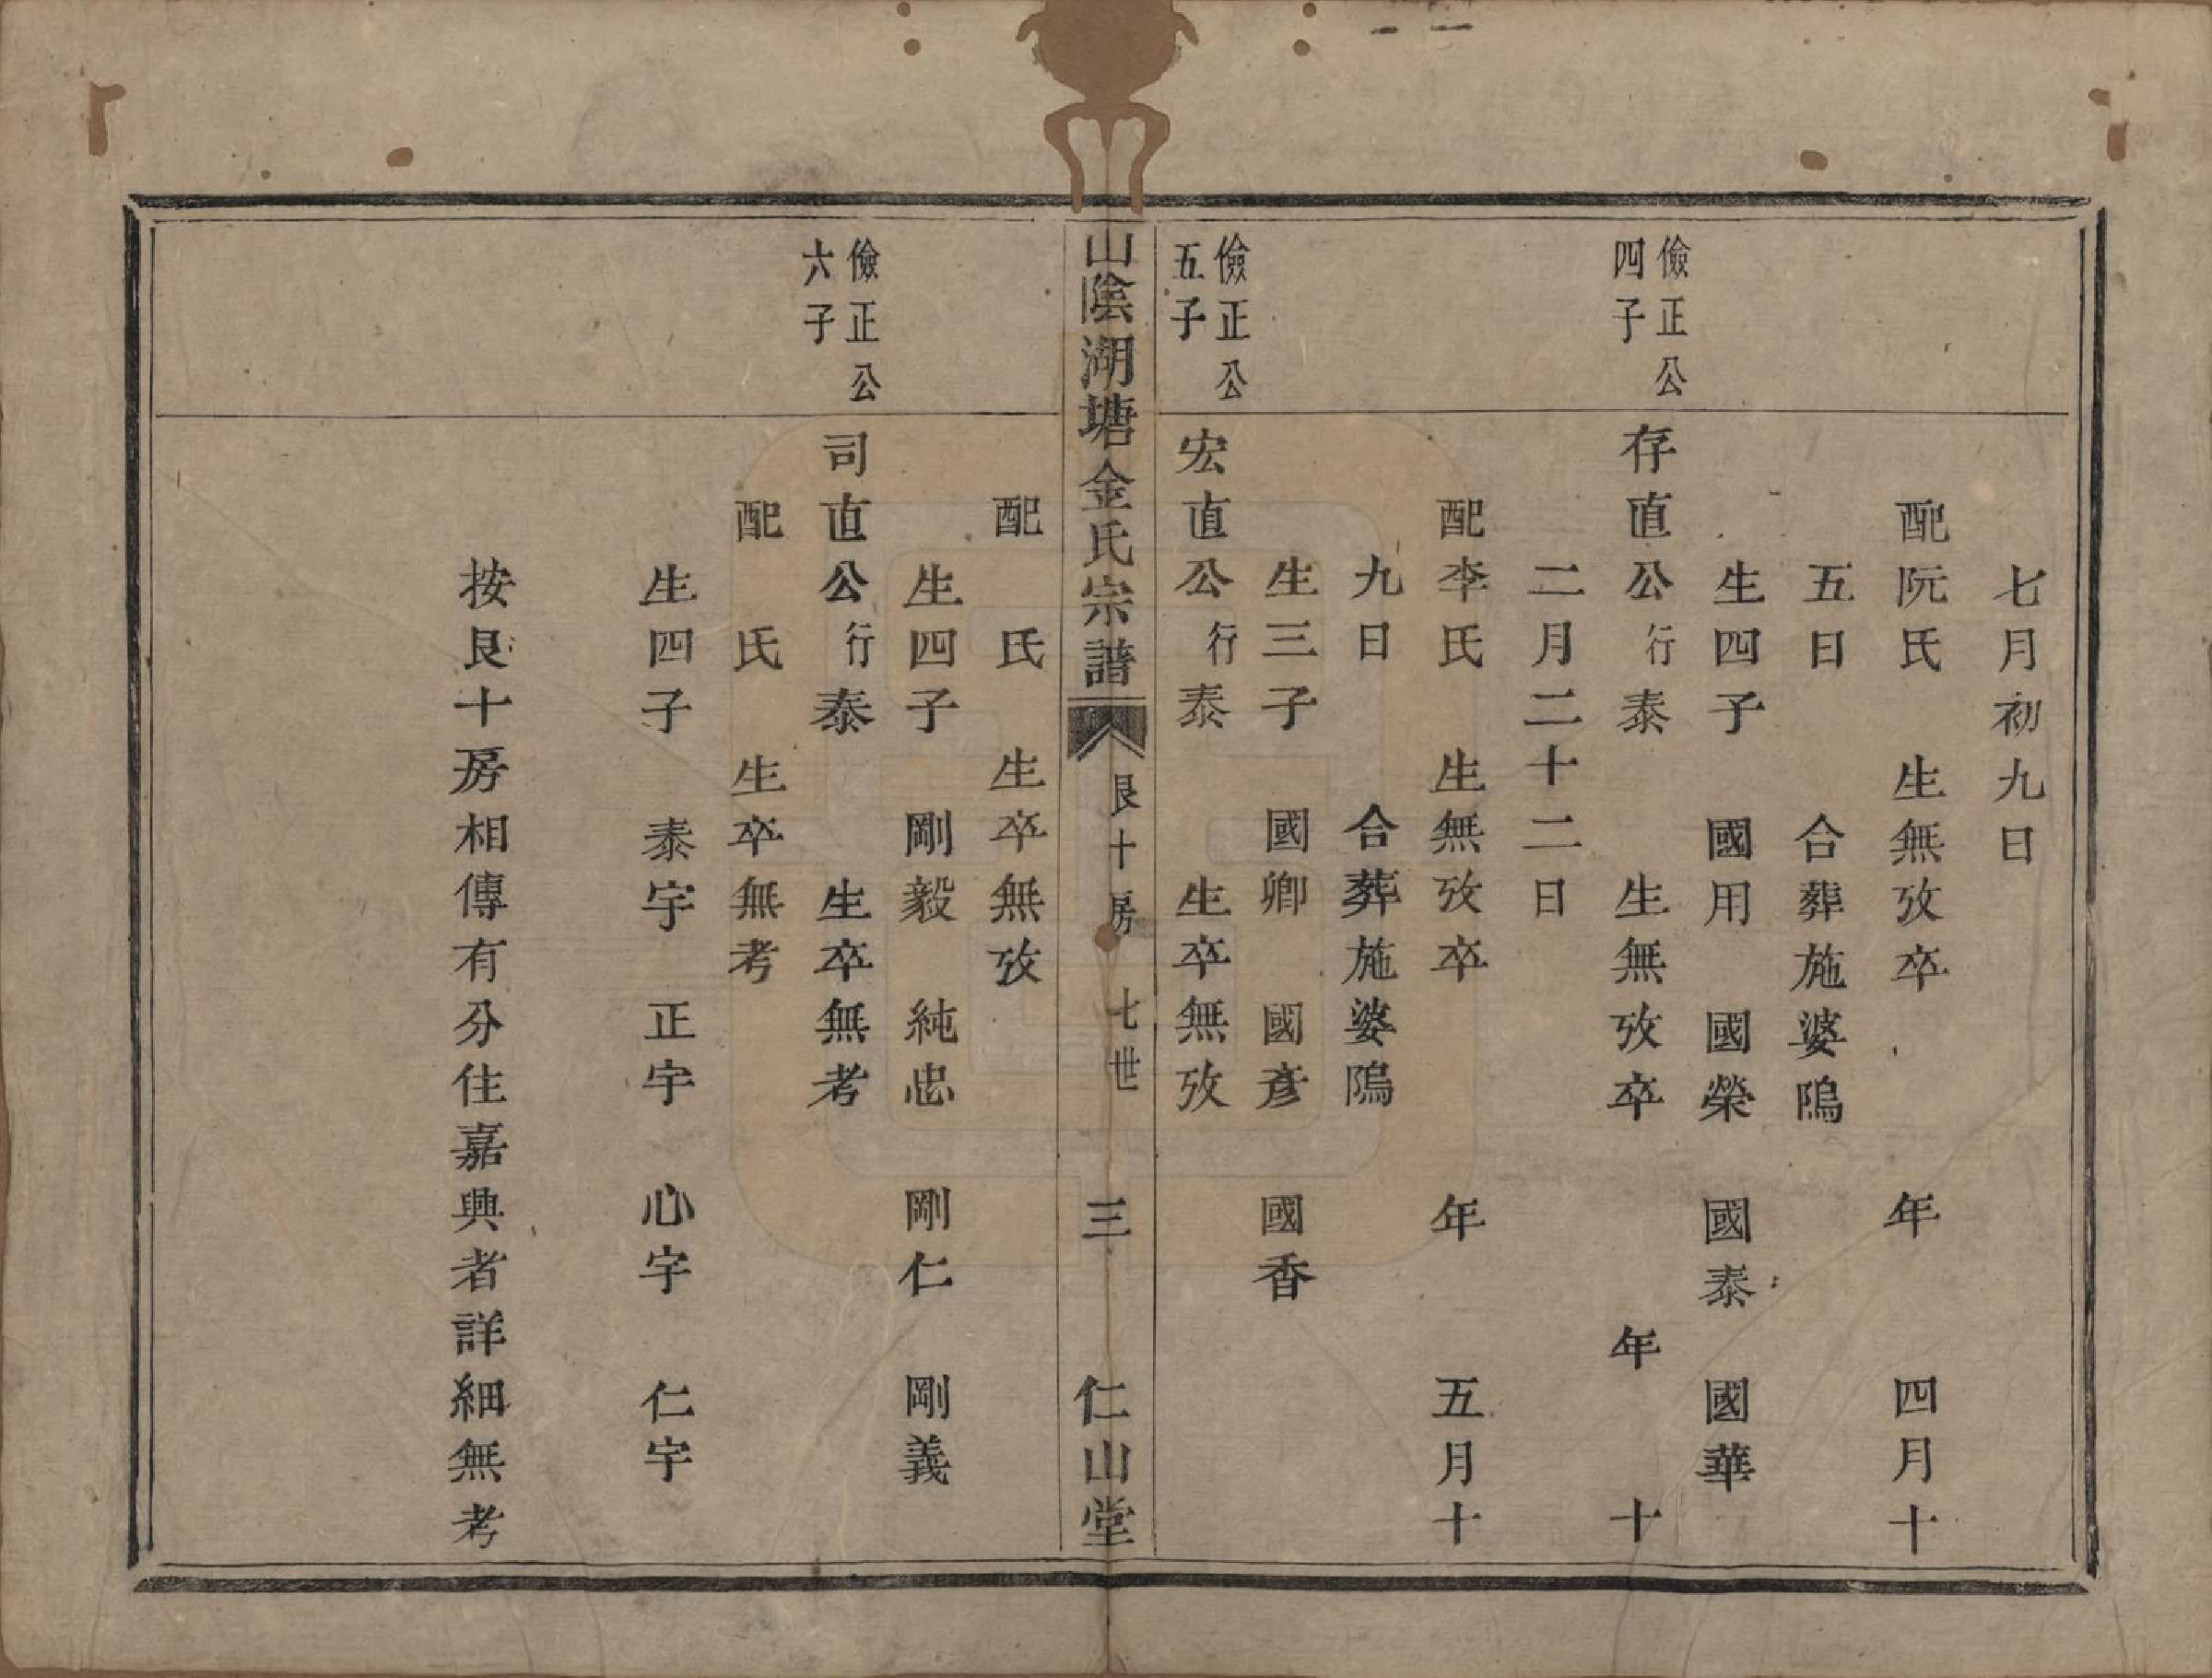 七月初九日
配阮氏　生無攷卒　年　四月十
五日　合葬施婆隖
生四子　國用　國榮　國泰　國華
儉正公
四子
存直公行泰　生無攷卒　年　十
二月二十二日
配李氏　生無攷卒　年　五月十
九日　合葬施婆隖
生三子　國卿　國彥　國香
儉正公
五子
宏直公行泰　生卒無攷
山陰湖塘金氏宗譜　艮十房　七世　三　仁山堂
配　氏　生卒無攷
生四子　剛毅　純忠　剛仁　剛義
儉正公
六子
司直公行泰　生卒無考
配　氏　生卒無考
生四子　泰宇　正宇　心宇　仁宇
按艮十房相傳有分住嘉興者詳細無考